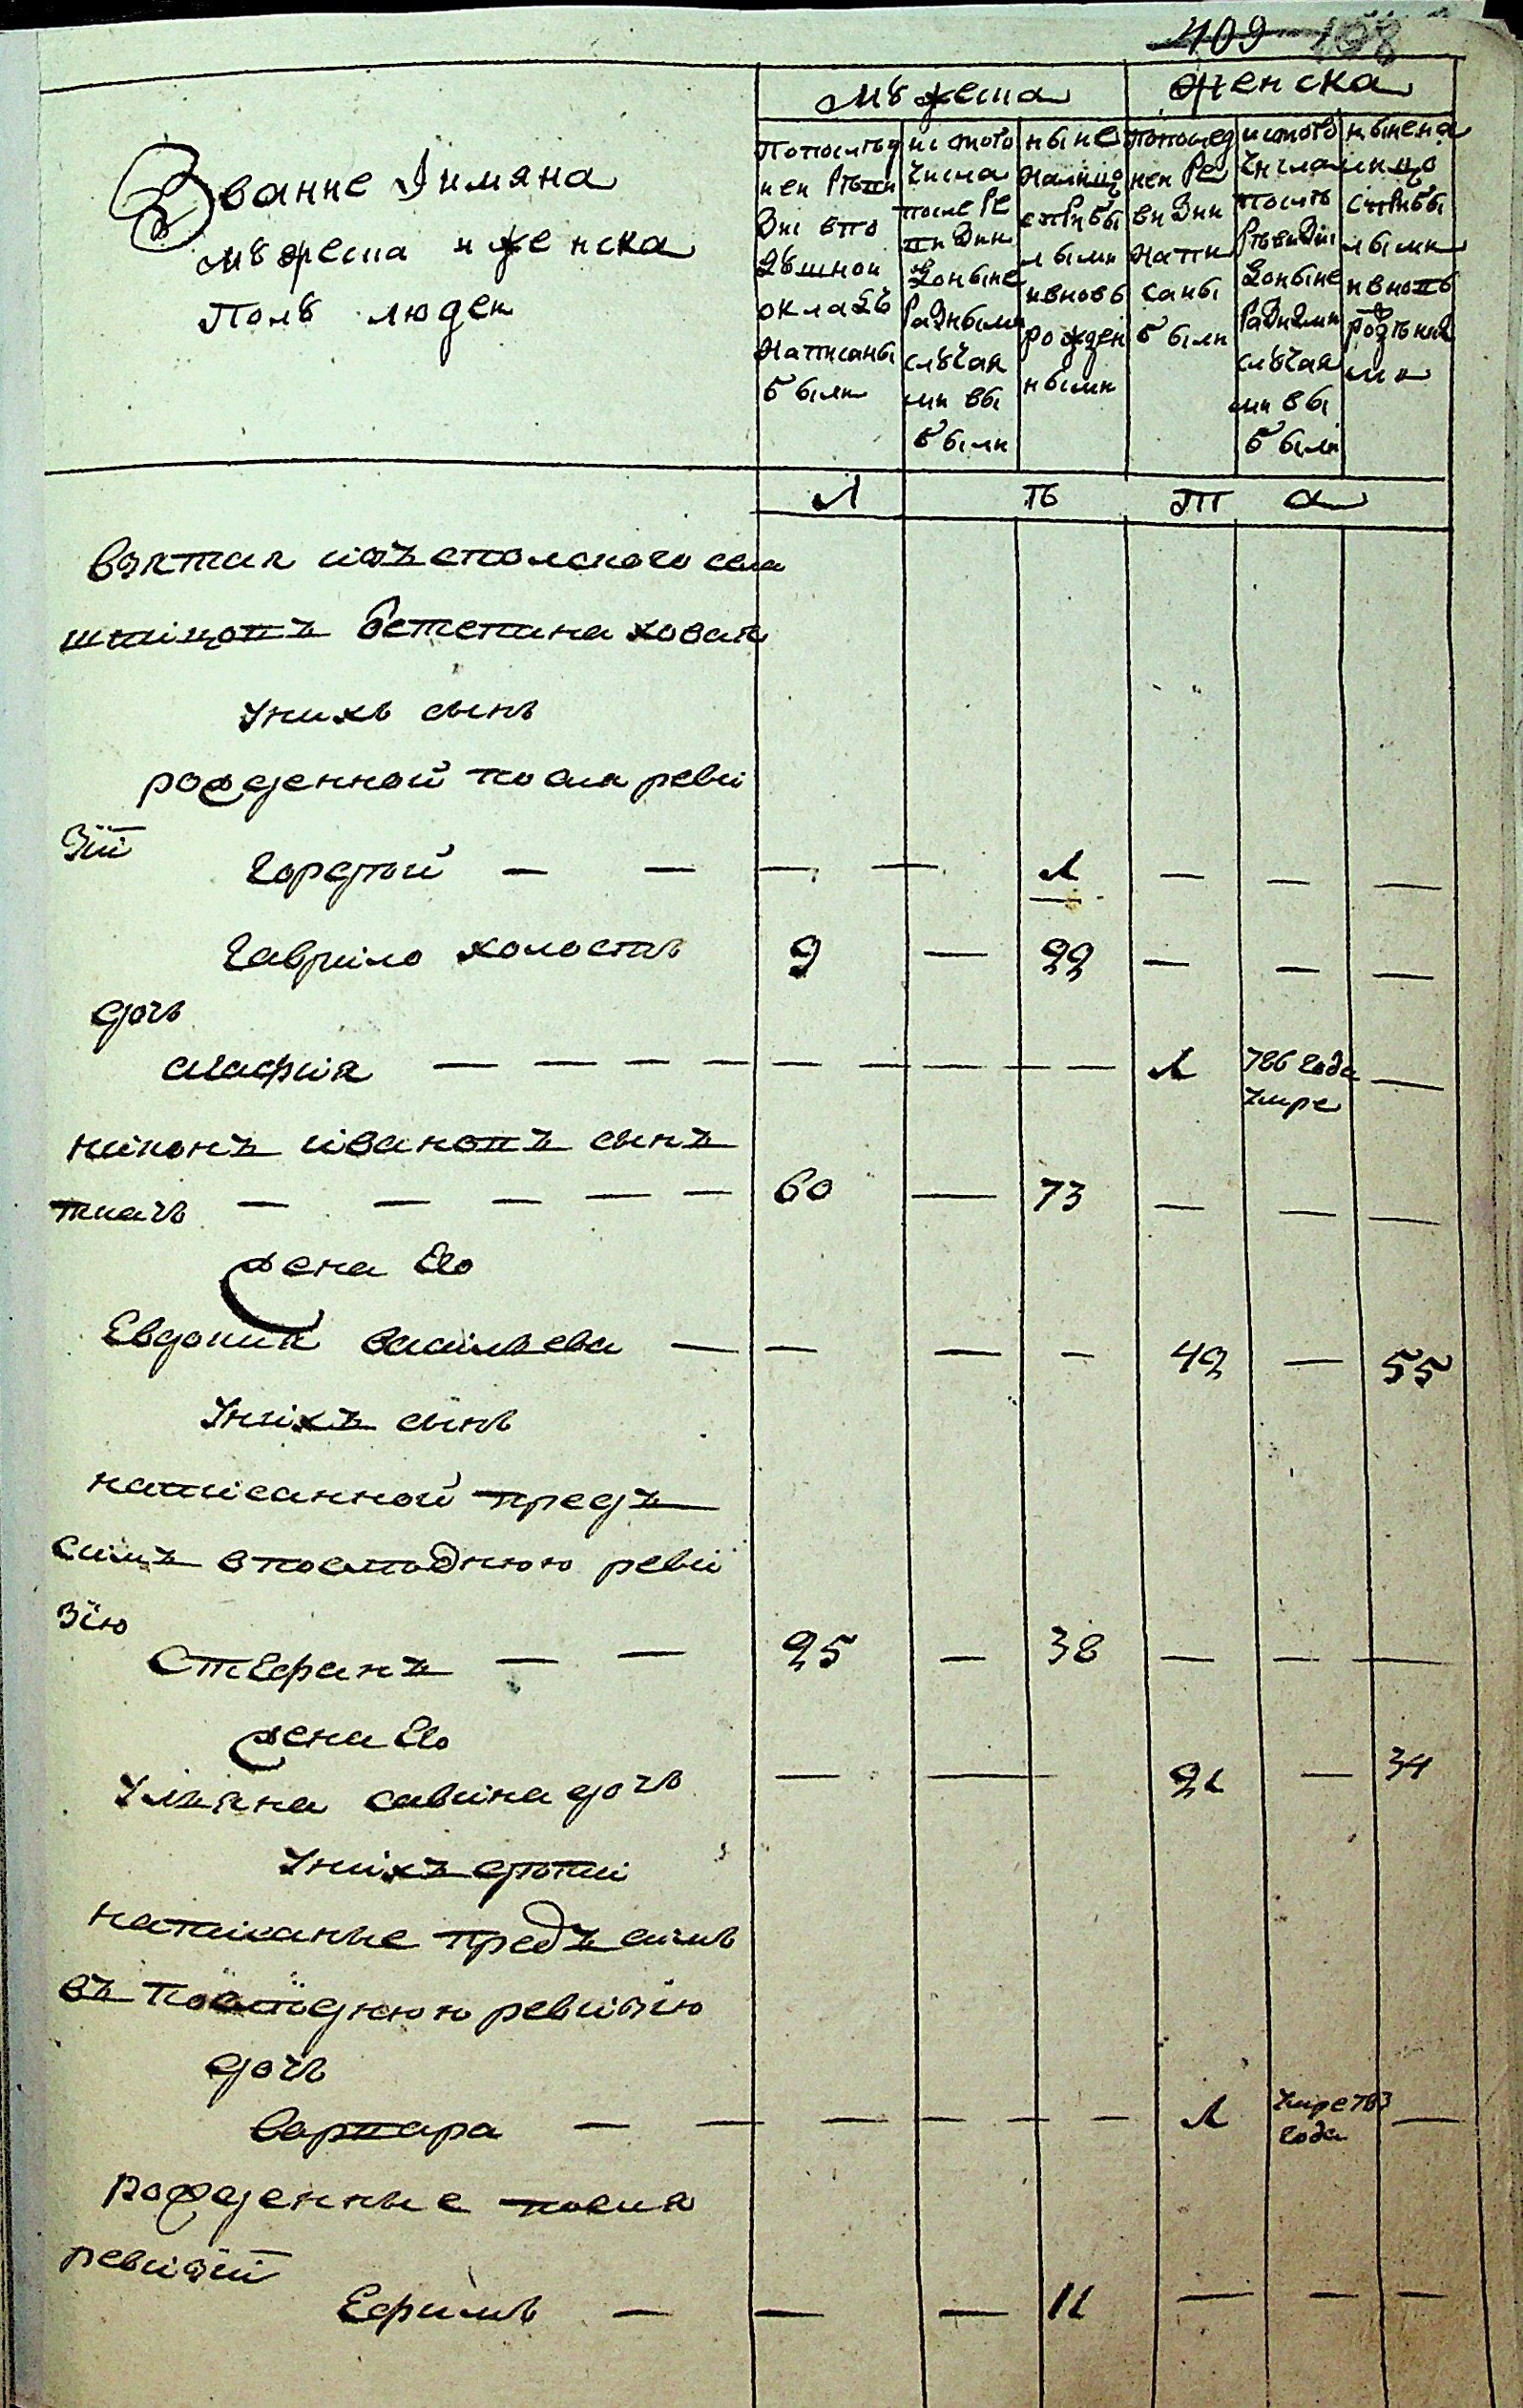 409
Звание Имяна
мужеска и женска
Полу людеи
мужеска
женска
Попослѣд
неи Рѣви
Зиі впо
душнои
окладъ
Написаны
были
ис того
числа
после Ре
ви Зии
Доныне
Разными
случая
ми вы
были
ныне
Налицо
сприбы
лыми
ивновь
рожден
ными
Попослед
неи Ре
ви Зии
Напи
саны
были
ис того
числа
послѣ
Рѣви Зиі
Доныне
Разными
случая
ми вы
были
ныне на
лицо
сприбы
лыми
ивновь
рожденны
ми
Л Ѣ Т а
взятая изъ столского села
унихъ сынъ
рожденной посля реви
зіи
Гордѣй — — — — 1 — — —
Гаврило холостъ 9 — 22 — — —
дочь
Агафия — — — — — — — 1 786 года умре —
никонъ ивановъ сынъ
ткачь — — — — — 60 — 73 — — —
жена Ево
Евдокия васильева — — — — 42 — 55
унихъ сынъ
написанной предъ
симъ впослѣднюю реви
зію
Стефанъ — — 25 — 38 — — —
жена Ево
Ульяна савина дочь — — 21 — 34
унихъ дѣти
написанные предъ симъ
въ послѣднюю ревизію
дочь
Варвара — — — — — — 1 умре 783 года —
рожденные посля
ревизіи
Ефимъ — — — 11 — — —